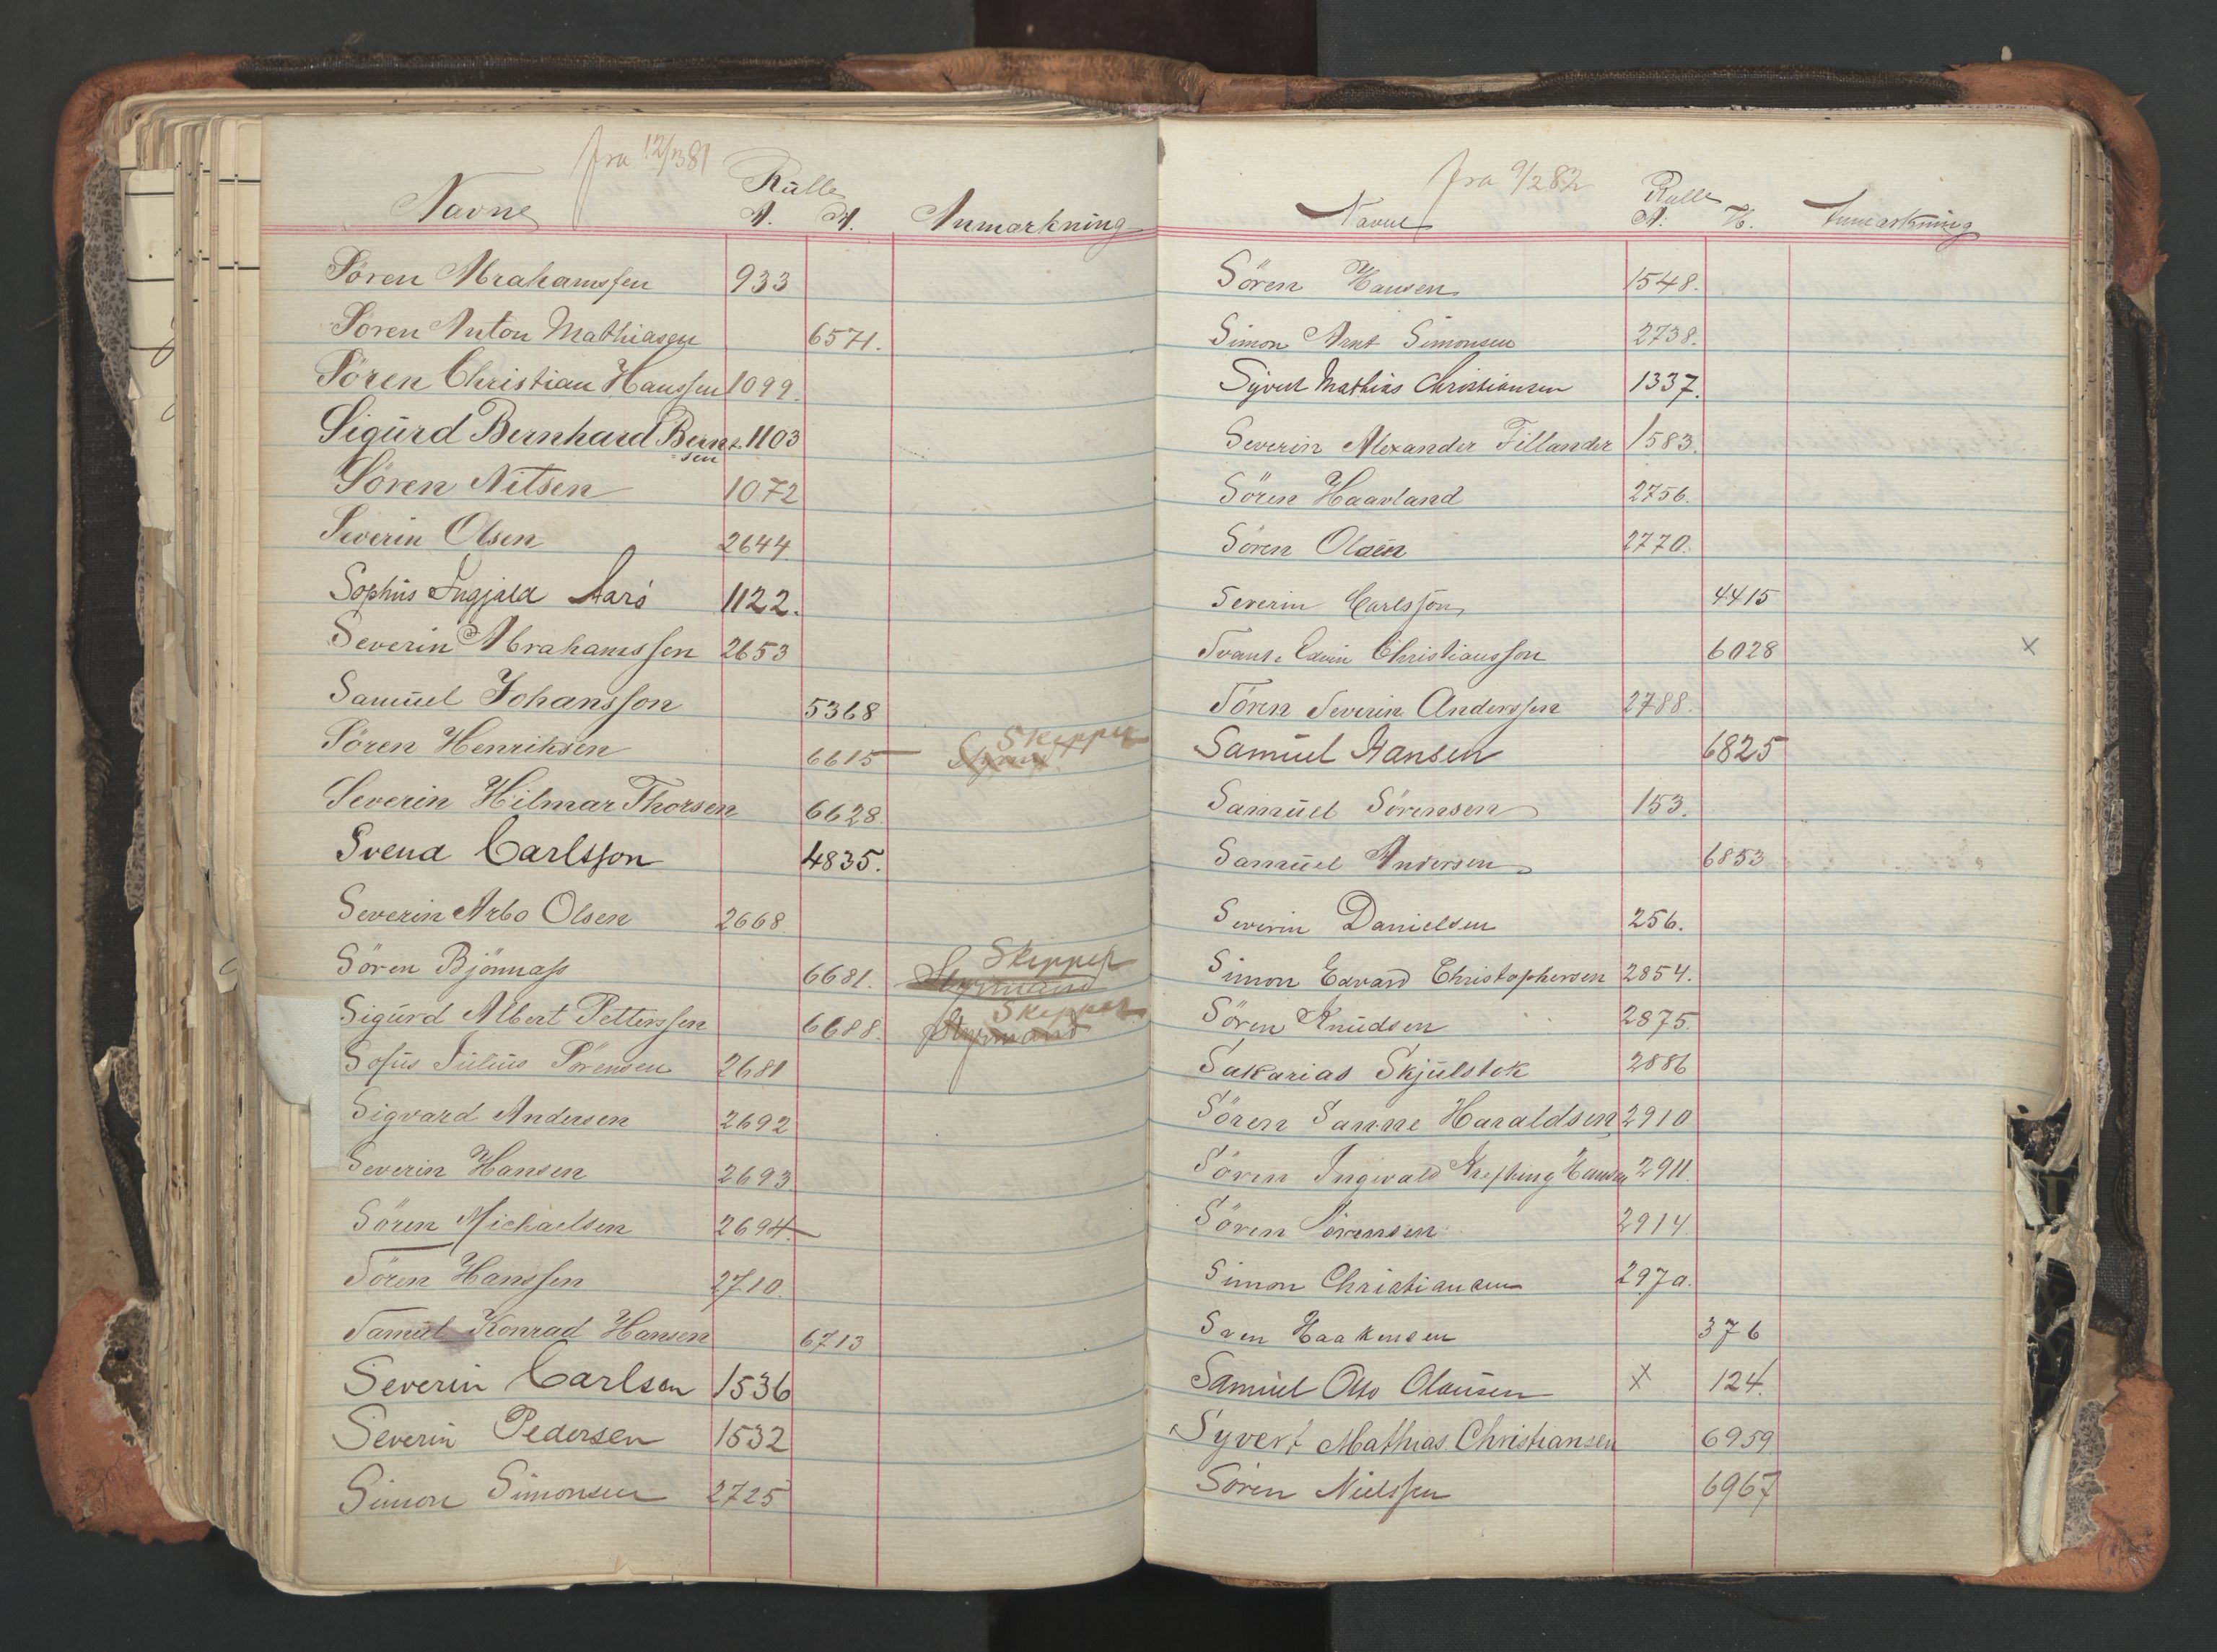 fra 12/3 81
Rulle
Navne A. H. Anmærkning
Sören Abrahamssen 933
Sören Anton Mathiasen 6571.
Sören Christian Hanssen 1099.
Sigurd Bernhard Bernt- 1103
sen
Sören Nilsen 1072
Severin Olsen 2644
Sophus Ingjald Aars 1122.
Severin Abrahamssen 2653
Samuel Johansson 5368
Skipper
Sören Henriksen 6615
Severin Hilmar Thorsen 6628.
Svend Carlsson 4835.
Severin Arbo Olsen 2668
Skipper
Sören Bjönnass 6681. Styrmand
Skipper
Sigurd Albert Petterssen 6688. Styrmand
Sofus Julius Sörensen 2681
Sigvard Andersen 2692
Severin Hansen 2693
Sören Michaelsen 2694.
Sören Hanssen 2710.
Samuel Konrad Hansen 6713
Severin Carlsen 1536
Severin Pedersen 1532
Simon Simonsen 2725
fra 9/2 82
Rulle
Navne A. H. Anmærkning
Sören Hansen 1548.
Simon Arnt Simonsen 2738.
Syvert Mathias Christiansen 1337.
Severin Alexander Fillander 1583.
Sören Haavland 2756.
Sören Olsen 2770.
Severin Carlsson 4415
Svant. Edvin Christiansson 6028 x
Sören Severin Anderssen 2788.
Samuel Hansen 6825
Samuel Sörensen 153.
Samuel Andersen 6853
Severin Danielsen 256.
Simon Edvard Christophersen 2854.
Sören Knudsen 2875.
Sakarias Skjulstok 2886
Sören Sanne Haraldsen 2910
Sören Ingwald Hansen 2911.
Sören Sörensen 2914.
Simon Christiansen 2970.
Sven Haakensen 376
Samuel Otto Olausen x 124.
Syvert Mathias Christiansen 6959
Sören Nielssen 6967